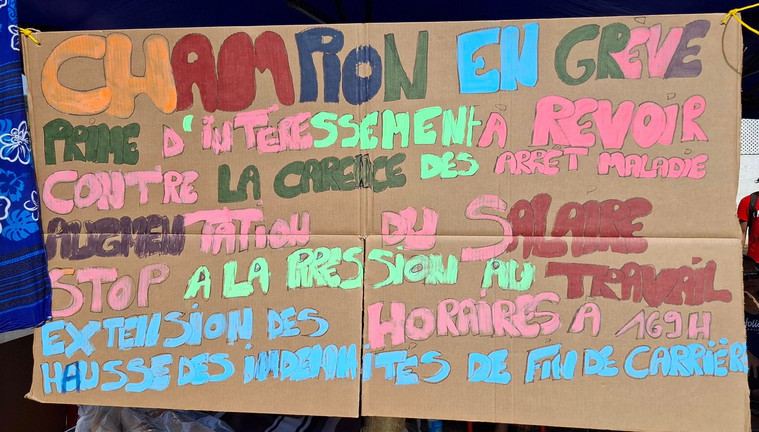 CHAMPION EN GRÈVE
PRIME D'INTÉRESSEMENT À REVOIR
CONTRE LA CARENCE DES ARRÊT MALADIE
AUGMENTATION DU SALAIRE
STOP A LA PRESSION AU TRAVAIL
EXTENSION DES HORAIRES À 169H
HAUSSE DES INDEMNITÉS DE FIN DE CARRIÈR